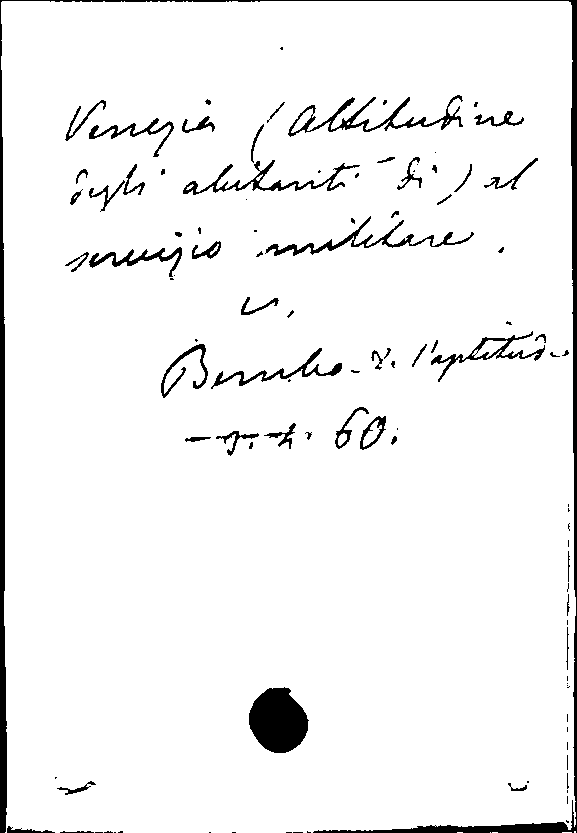 Venezia (Attitudine
degli abitanti di) al
servizio militare.
v.
Bembo - l'aptitude
60.